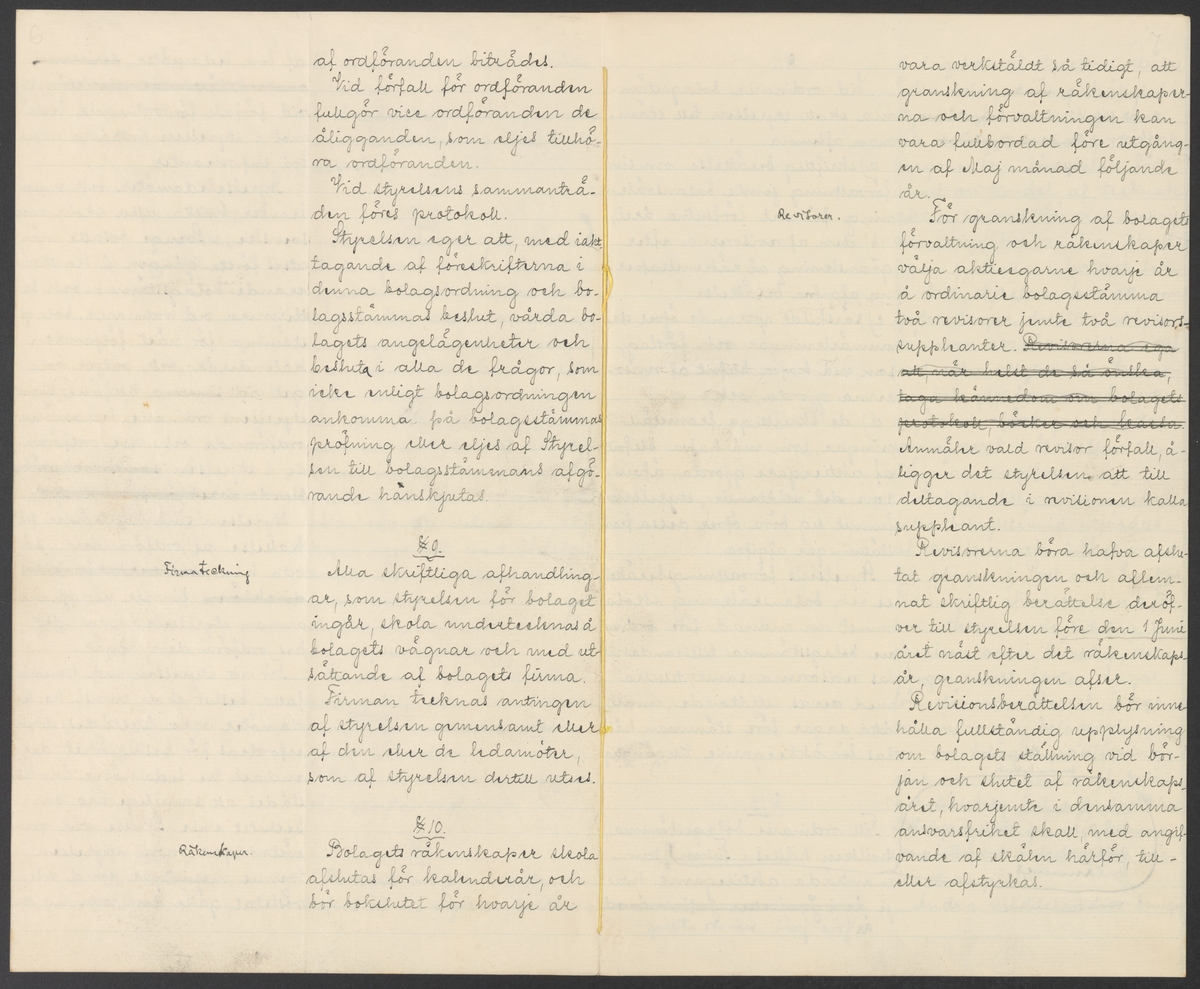 af ordföranden biträdes.
Vid förfall för ordföranden
fullgör vice ordföranden de
åligganden, som eljes tillhö-
ra ordföranden.
Vid styrelsens sammanträ-
den föres protokoll.
Styrelsen eger att, med iakt
tagande af föreskrifterna i
denna bolagsordning och bo-
lagsstämmas beslut, vårda bo-
lagets angelägenheter och
besluta i alla de frågor, som
icke enligt bolagsordningen
ankomma på bolagsstämmas
pröfning eller eljes af Styrel-
sen till bolagsstämmans afgö-
rande hänskjutas.
§ 9.
Firmateckning
Alla skriftliga afhandling-
ar, som styrelsen för bolaget
ingår, skola undertecknas å
bolagets vägnar och med ut-
sättande af bolagets firma.
Firman tecknas antingen
af styrelsen gemensamt eller
af den eller de ledamöter,
som af styrelsen dertill utses.
§ 10.
Räkenskaper.
Bolagets räkenskaper skola
afslutas för kalenderår, och
bör bokslutet för hvarje år
vara verkstäldt så tidigt, att
granskning af räkenskaper-
na och förvaltningen kan
vara fullbordad före utgång-
en af Maj månad följande
år.
Revisorer.
För granskning af bolagets
förvaltning och räkenskaper
välja aktieegarne hvarje år
å ordinarie bolagsstämma
två revisorer jemte två revisors-
suppleanter. Revisorerna ega
att, när helst de så önska,
taga kännedom om bolagets
protokoll, böcker och kassa.
Anmäler vald revisor förfall, å-
ligger det styrelsen att till
deltagande i revisionen kalla
suppleant.
Revisorerna böra hafva afslu-
tat granskningen och aflem-
nat skriftlig berättelse deröf-
ver till styrelsen före den 1 Juni
året näst efter det räkenskaps-
år, granskningen afser.
Revisionsberättelsen bör inne
hålla fullständig upplysning
om bolagets ställning vid bör-
jan och slutet af räkenskaps-
året, hvarjemte i densamma
ansvarsfrihet skall, med angif-
vande af skälen härför, till-
eller afstyrkas.